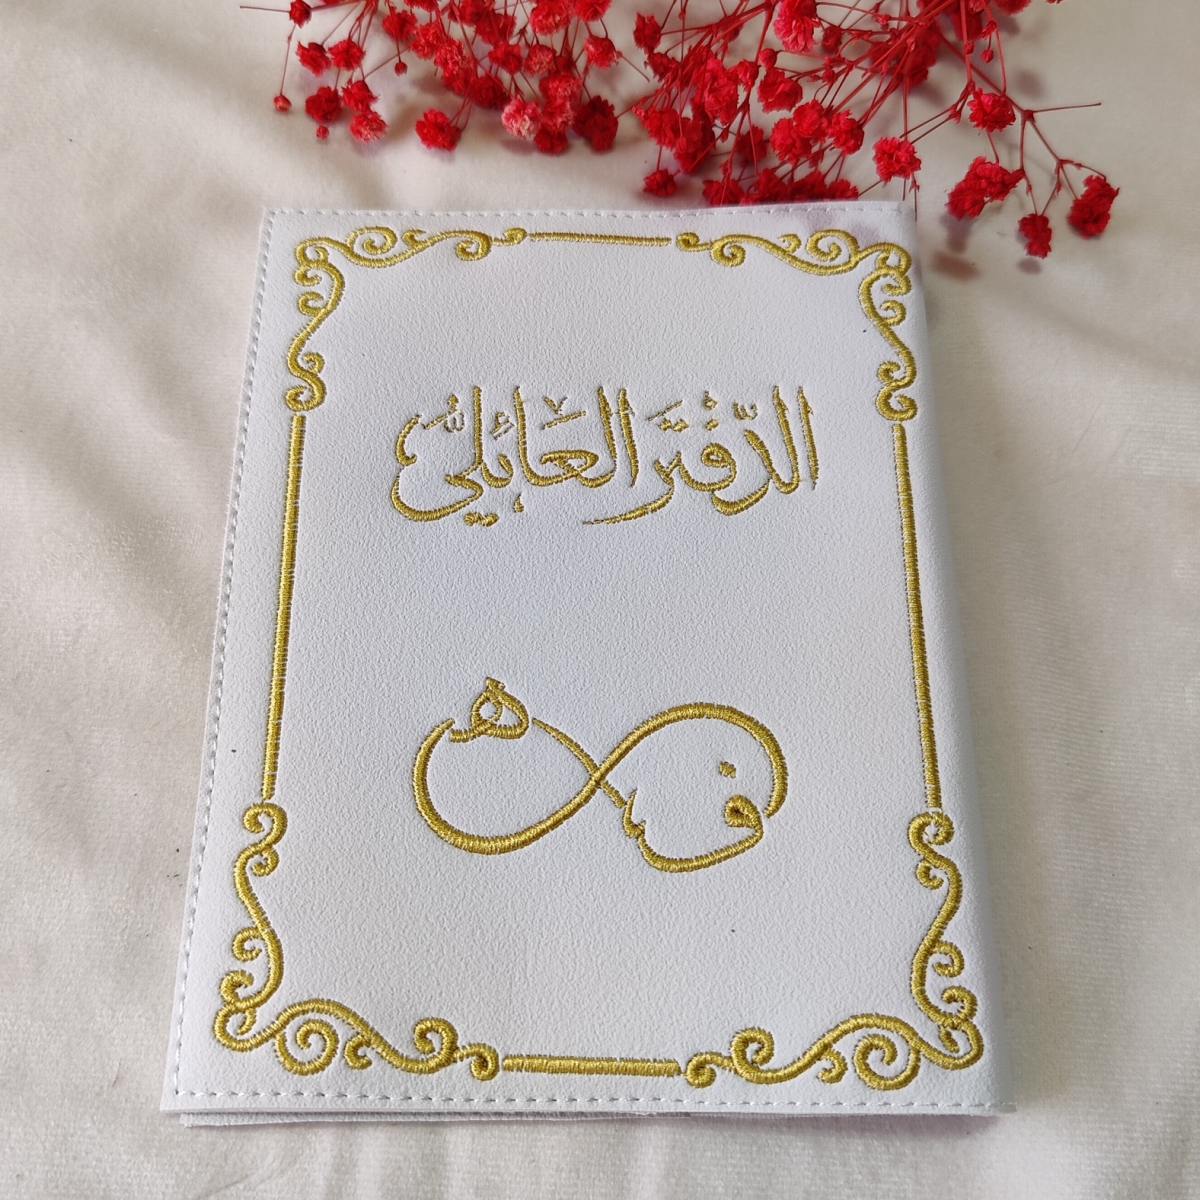 الدَّفْتَر العَائِليُّ
هـ
ف